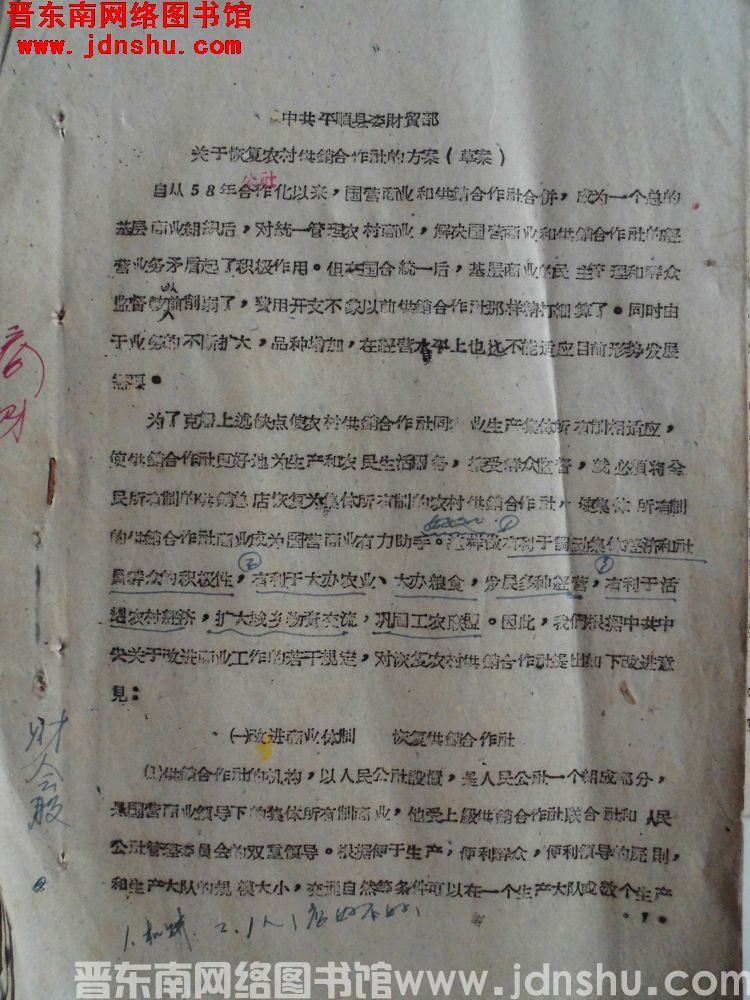 晋东南网络图书馆
www.jdnshu.com
中共平顺县委財貿部
关于恢复农村供銷合作社的方案（草案）
公社
自从58年合作化以来，国营商业和供銷合作社合併，成为一个总的
基层商业組织后，对統一管理农村商业，解决国营商业和供銷合作社的經
营业务矛盾起了积极作用。但在国合統一后，基层商业的民主管理和群众
监督較前削弱了，費用开支不象以前供銷合作社那样精打細算了。同时由
于业务的不断扩大，品种增加，在經营水平上也远不能适应目前形势发展
需要。
为了克服上述缺点使农村供銷合作社同 业生产集体所有制相适应，
使供銷合作社更好地为生产和农民生活服务，接受群众监督，就必須将全
民所有制的供銷总店恢复为集体所有制的农村供銷合作社，使集体所有制
的供銷合作社商业成为国营商业有力助手。这样做有利于調动集体經济和社
員群众的积极性，有利于大办农业、大办粮食，发展多种經营，有利于活
躍农村經济，扩大城乡物資交流，巩固工农联盟。因此，我們根据中共中
央关于改进商业工作的若干規定，对恢复农村供銷合作社提出如下改进意
見：
㈠改进商业体制　恢复供銷合作社
⑴供銷合作社的机构，以人民公社設置，是人民公社一个組成部分，
是国营商业領导下的集体所有制商业，他受上級供銷合作社联合社和人民
公社管理委員会的双重領导。根据便于生产，便利群众，便利領导的原則，
和生产大队的規模大小，交通自然等条件可以在一个生产大队或数个生产
·1·
财会股
晋东南网络图书馆www.jdnshu.com